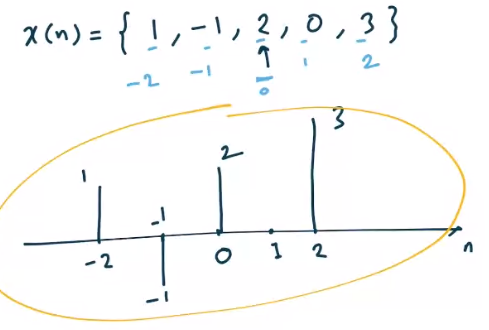 x(n) = { 1 , -1 , 2 , 0 , 3 }
-2 -1 0 1 2
3
1 2
-1
-2 0 1 2 n
-1